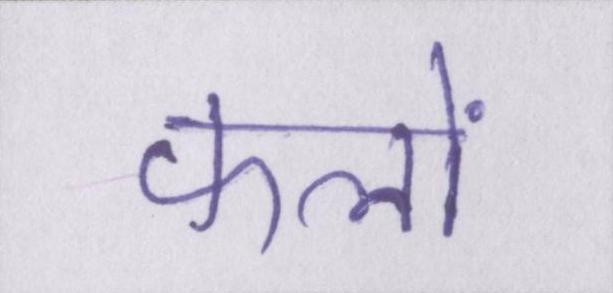 कलों